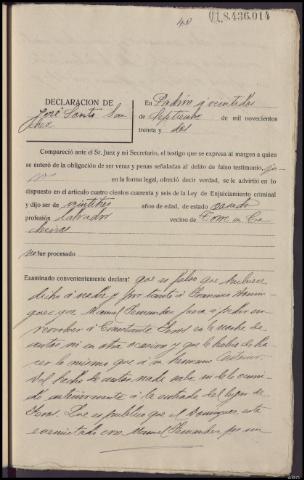 48
01.8.436.014
DECLARACION DE
José Santos San
En Padrón a veintidos
de Septiembre de mil novecientos
treinta y dos
Compareció ante el Sr. Juez y mi Secretario, el testigo que se expresa al margen a quien
se enteró de la obligación de ser veraz y penas señaladas al delito de falso testimonio,
en la forma legal, ofreció decir verdad, se le advirtió en lo
dispuesto en el artículo cuatro cientos cuarenta y seis de la Ley de Enjuiciamiento criminal
y dijo ser de veintitres años de edad, de estado casado
profesión labrador vecino de
no fue procesado
Examinado convenientemente declara: que es falso que hubiese
dicho a nadie y por tanto a Francisco Domin-
guez que Manuel Fernandez fuera a pedir un
revolver a Constante la noche de
autos ni en otra ocasion y que le habia de ha
cer lo mismo que a su hermano
del hecho de autos nada sabe ni de lo ocurri
do anteriormente a la entrada del lugar de
Que es publico que el Dominguez esta
enemistado con Manuel Fernandez por un